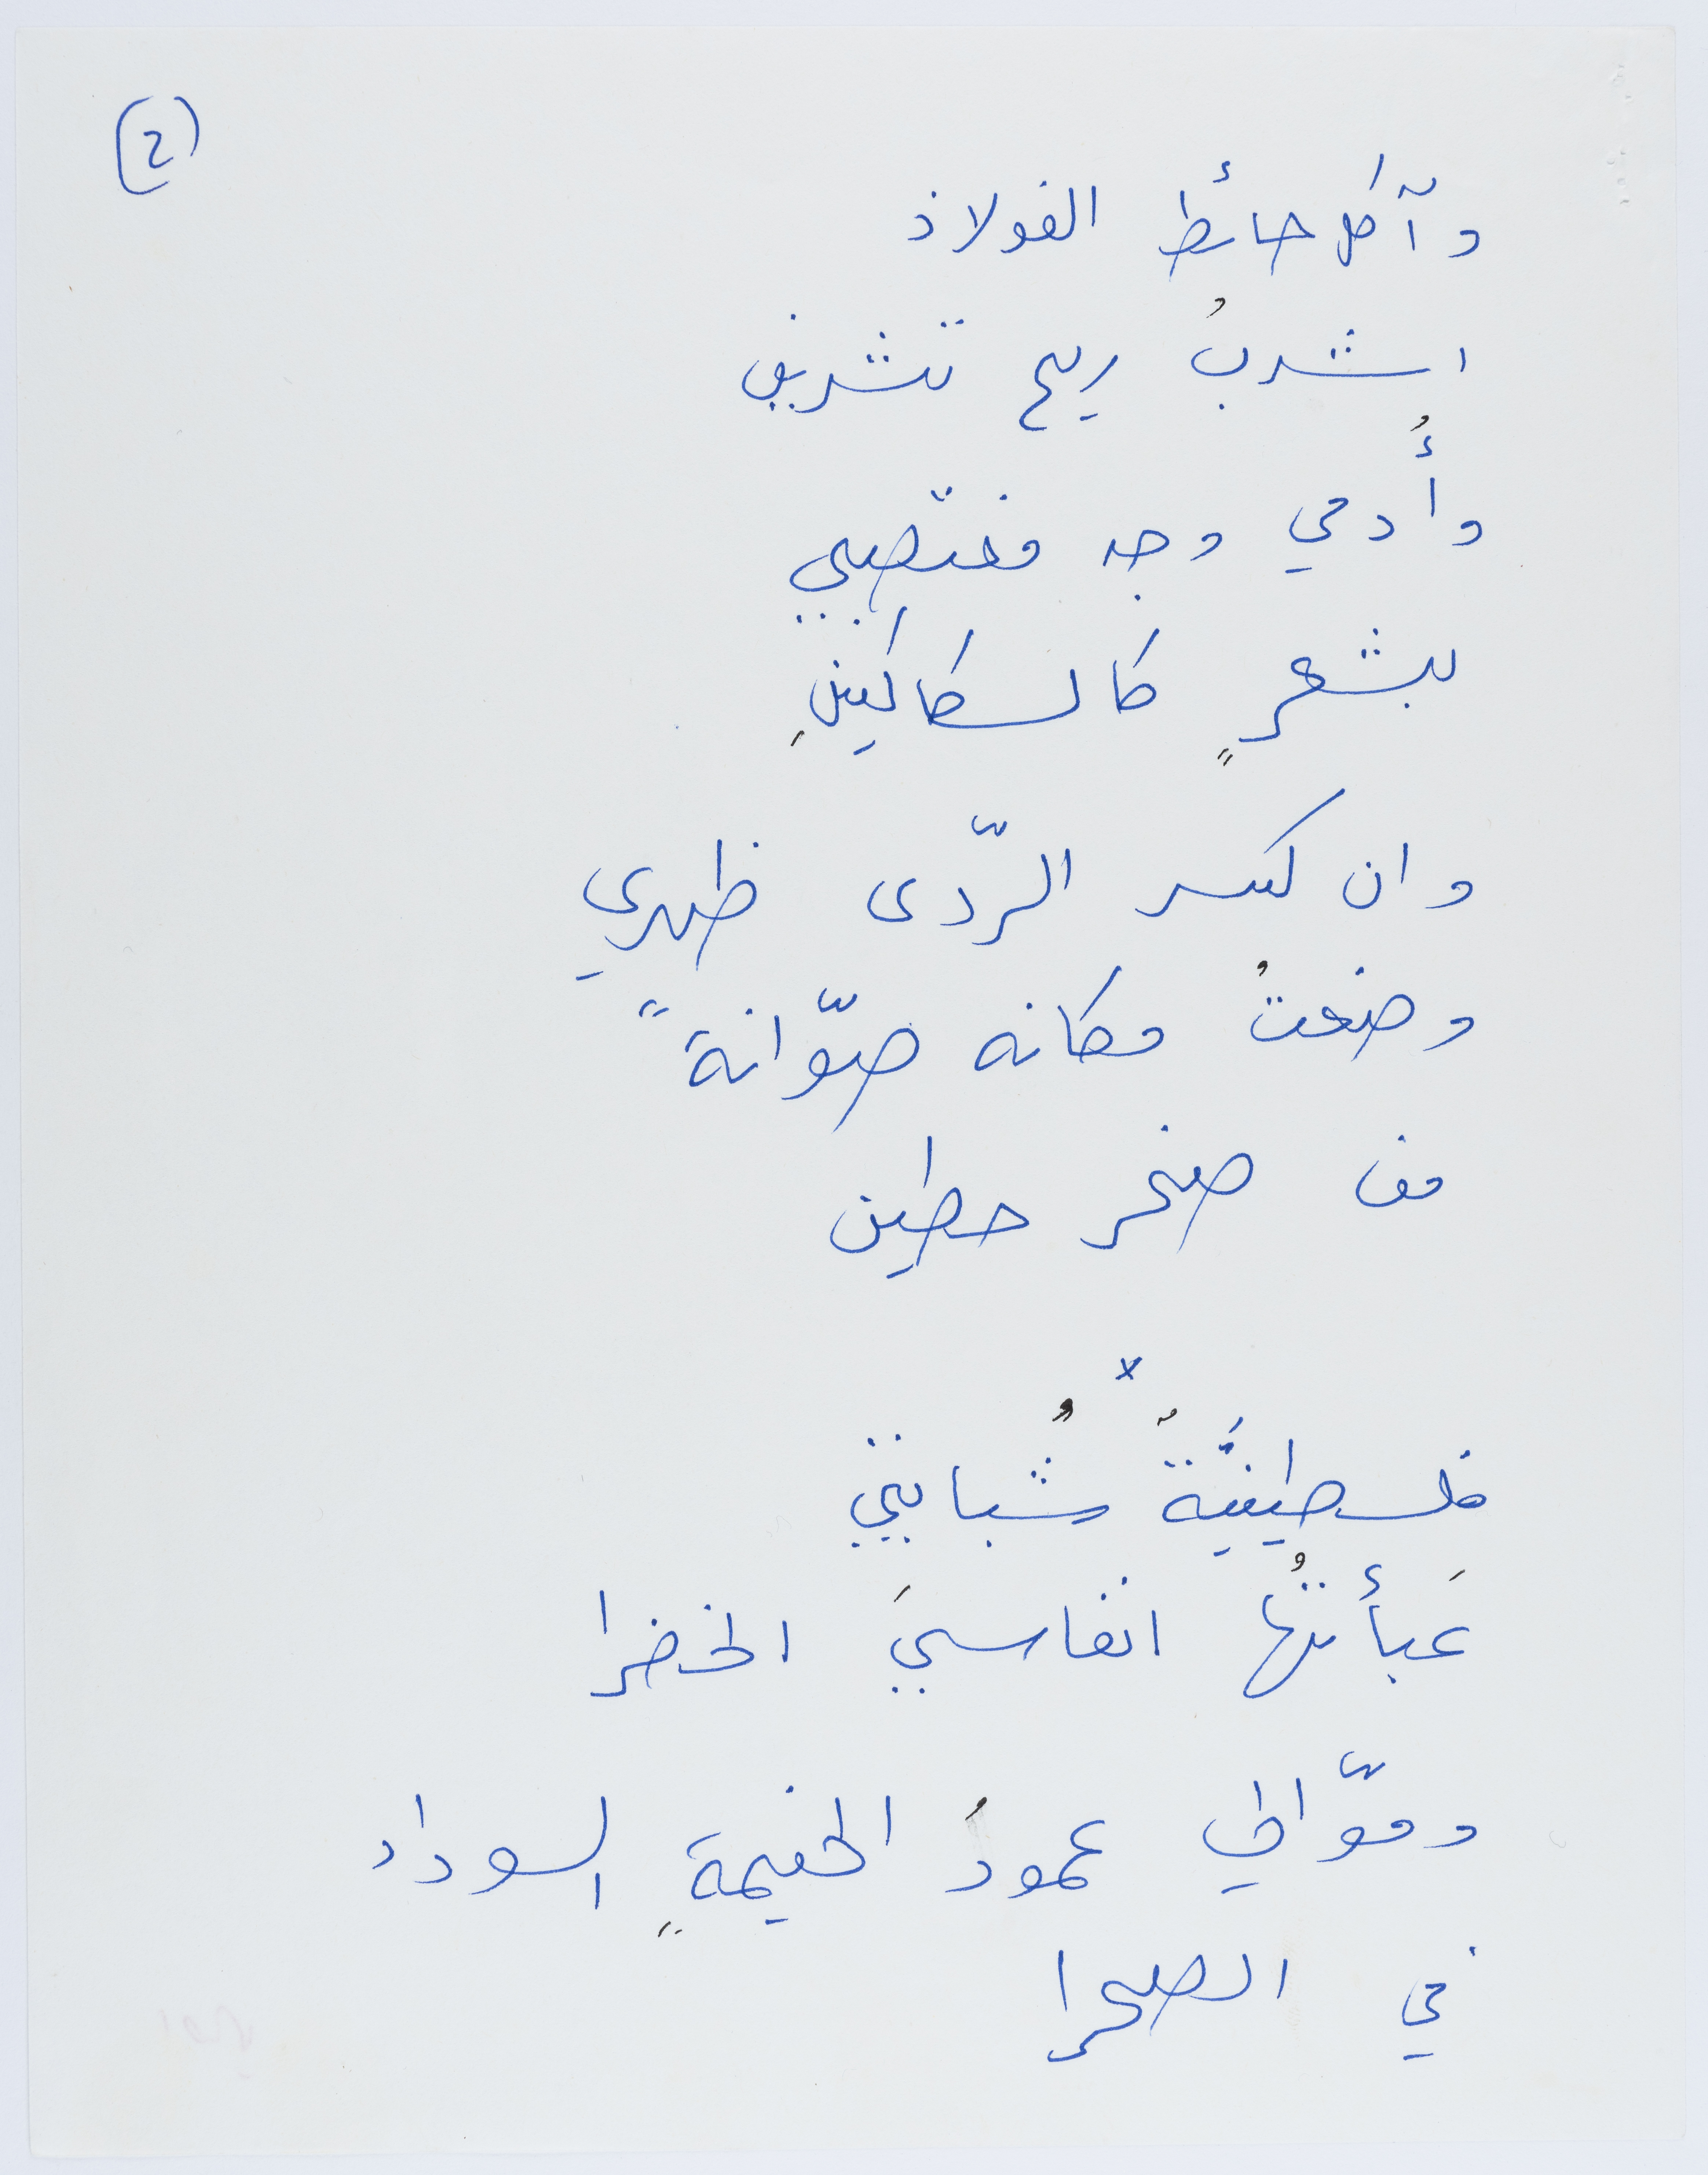 (2)
وآكل حائط الفولاذ
اشربُ ريح تشرين
وأُدمي وجه مغتصبي
بشعرٍ كالسكاكينِ
وان كسر الرّدى ظهري
وضعتُ مكانه صوّانةً
من صخر حطين
x
فلسطينيَّةٌ شُبابتي
عَبأتُها انفاسيَ الخضرا
وموّالي عمودُ الخيمةِ السوداء
في الصحرا